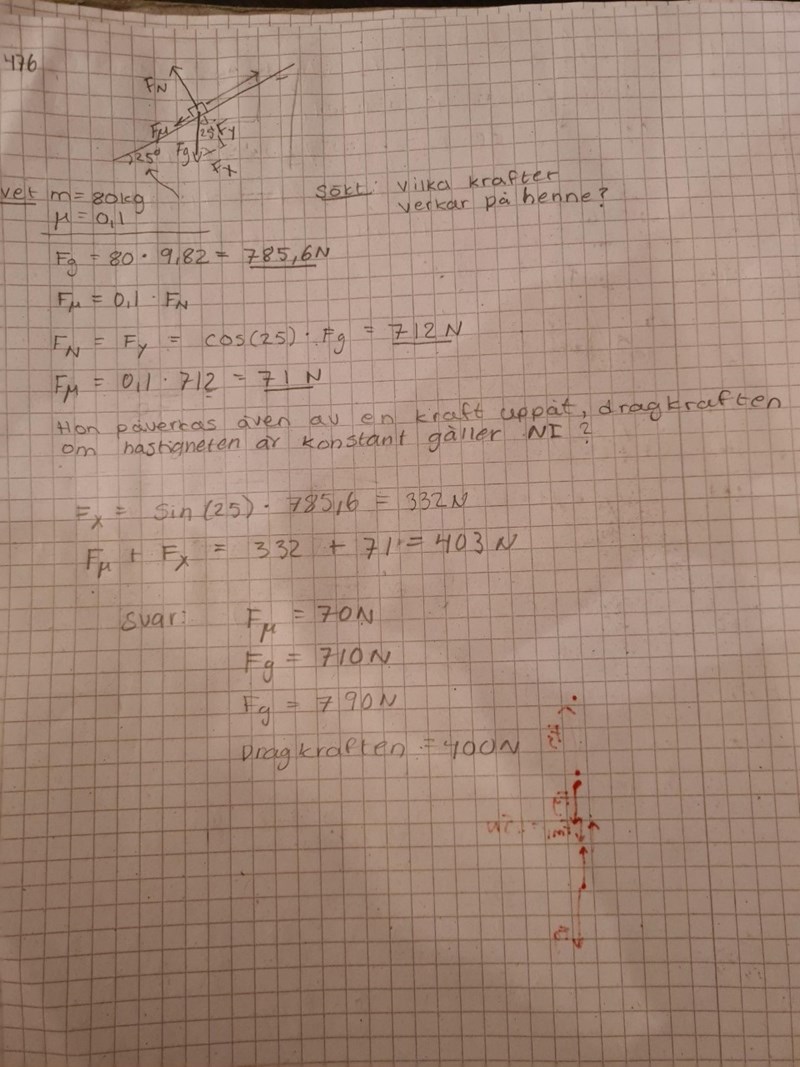 476
FN
Fμ
25 Fy
25° Fg
Fx
vet m = 80kg
μ = 0,1
Sökt: vilka krafter
verkar på henne?
Fg = 80 · 9,82 = 785,6N
Fμ = 0,1 · FN
FN = Fy = cos(25) · Fg = 712 N
Fμ = 0,1 · 712 = 71 N
Hon påverkas även av en kraft uppåt, dragkraften
om hastigheten är konstant gäller NI ?
Fx = sin(25) · 785,6 = 332N
Fμ + Fx = 332 + 71 = 403 N
Svar: Fμ = 70N
Fg = 710N
Fg = 790N
Dragkraften = 400N